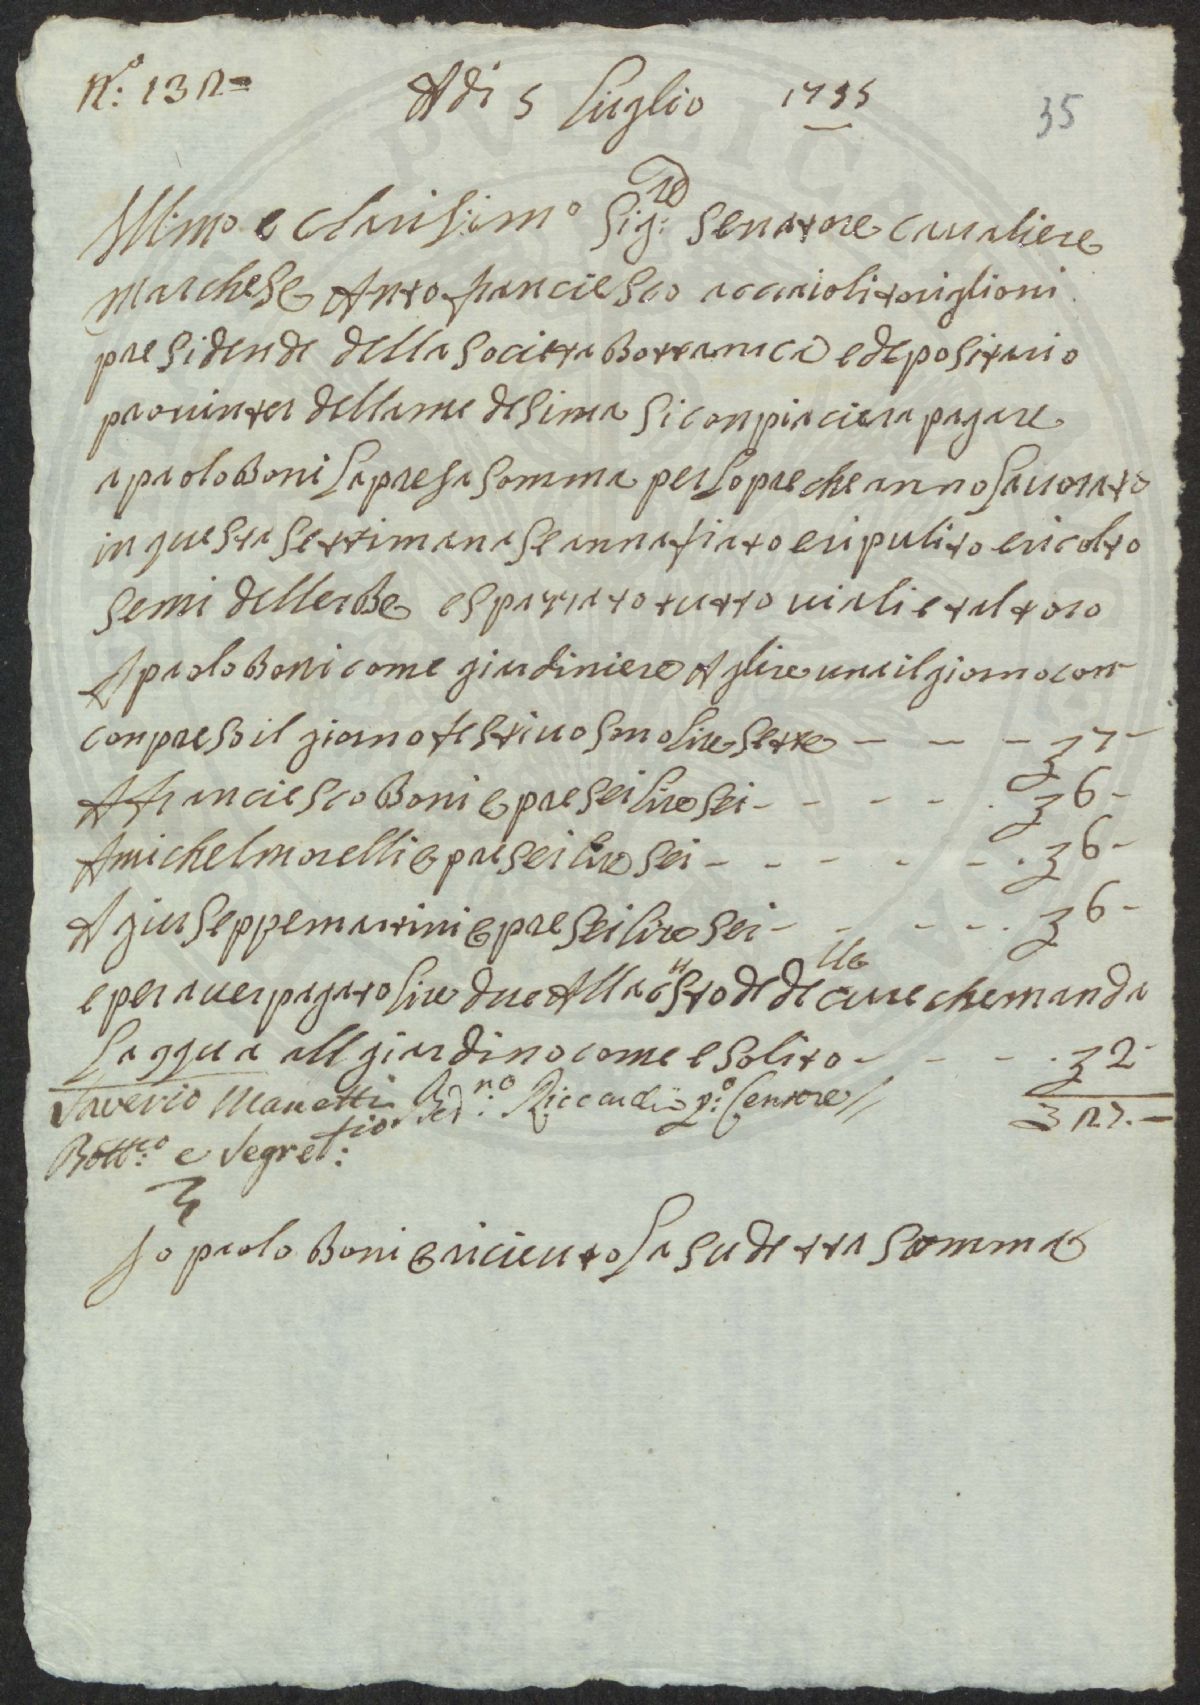 N.o: 132=
Adi 5 Luglio 1755
35
Ill:mo e clarisi:mo Sig:re Senatore cavaliere
marchese Antto franciesco acciaioli toriglioni
presidende della Società Bottanica e depositario
pro vinter della medesima si conpiaciera pagare
a paolo Boni la presa somma per lopre che anno lavorato
in questa settimana se annafiato e ripulito e ricolto
semi dellerbe e spazzato tutto viali e taltoro
A paolo Boni come giardiniere A lire una il giorno con
conpreso il giorno festivo sono lire sette - - - 7 -
A franciesco Boni e pre sei lire sei - - - - - 6 -
A michel morelli e pre sei lire sei - - - - - - 6 -
A giuseppe martini e pre sei lire sei - - - - - 6 -
e per aver pagato lire due Alla custode de delle cave che manda
laqqua all giardino come e solito - - - - 2 -
27. -
Saverio Manetti Ber:no Riccardi p:o Censore //
Bott:co e Segret:rio
Io paolo Boni e riceuto la sudetta somma